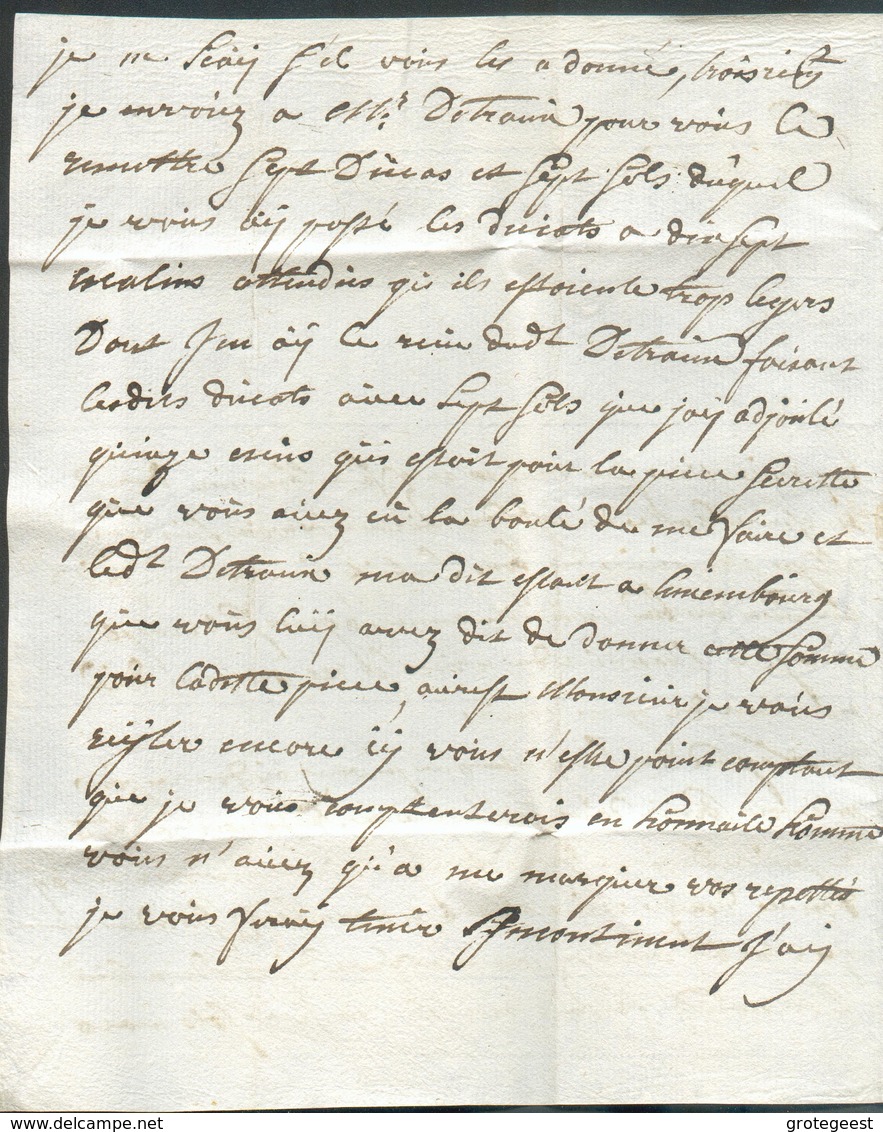 je ne scay s'il vous les a donné, troisiem
je envoiez a Mr. Detraux pour vous le
remettre Sept Ducas et Sept Sols dûquel
je vous aÿ possé les ducats a diesept
escalins attendus qu ils estoiente trop legers
Dont J'en aÿ le reçu dudt Detraux faisant
lesdits ducats avec Sept Sols que jaÿ adjouté
quinze escus qui estoit pour la piece Secrette
que vous aiiez eû la bonté de me faire et
ledt Detraux ma dit estant a Luxembourg
que vous luÿ avez dit de donner cette Somme
pour ladtte piece, aurest Monsieur je vous
reÿter encore sÿ vous n'este point comptant
que je vous comptenterois en honnaite homme
vous n'aiiez qu'a me marquer vos
je vous feraÿ tenir J'aÿ
www.delcampe.net
grotegeest